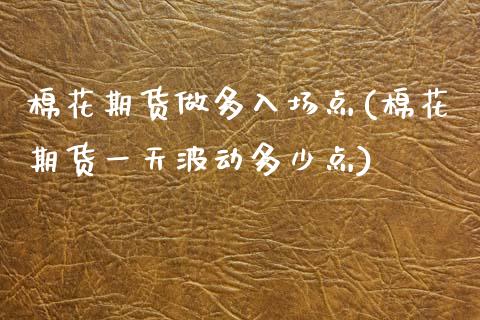 棉花期货做多入场点(棉花
期货一天波动多少点)